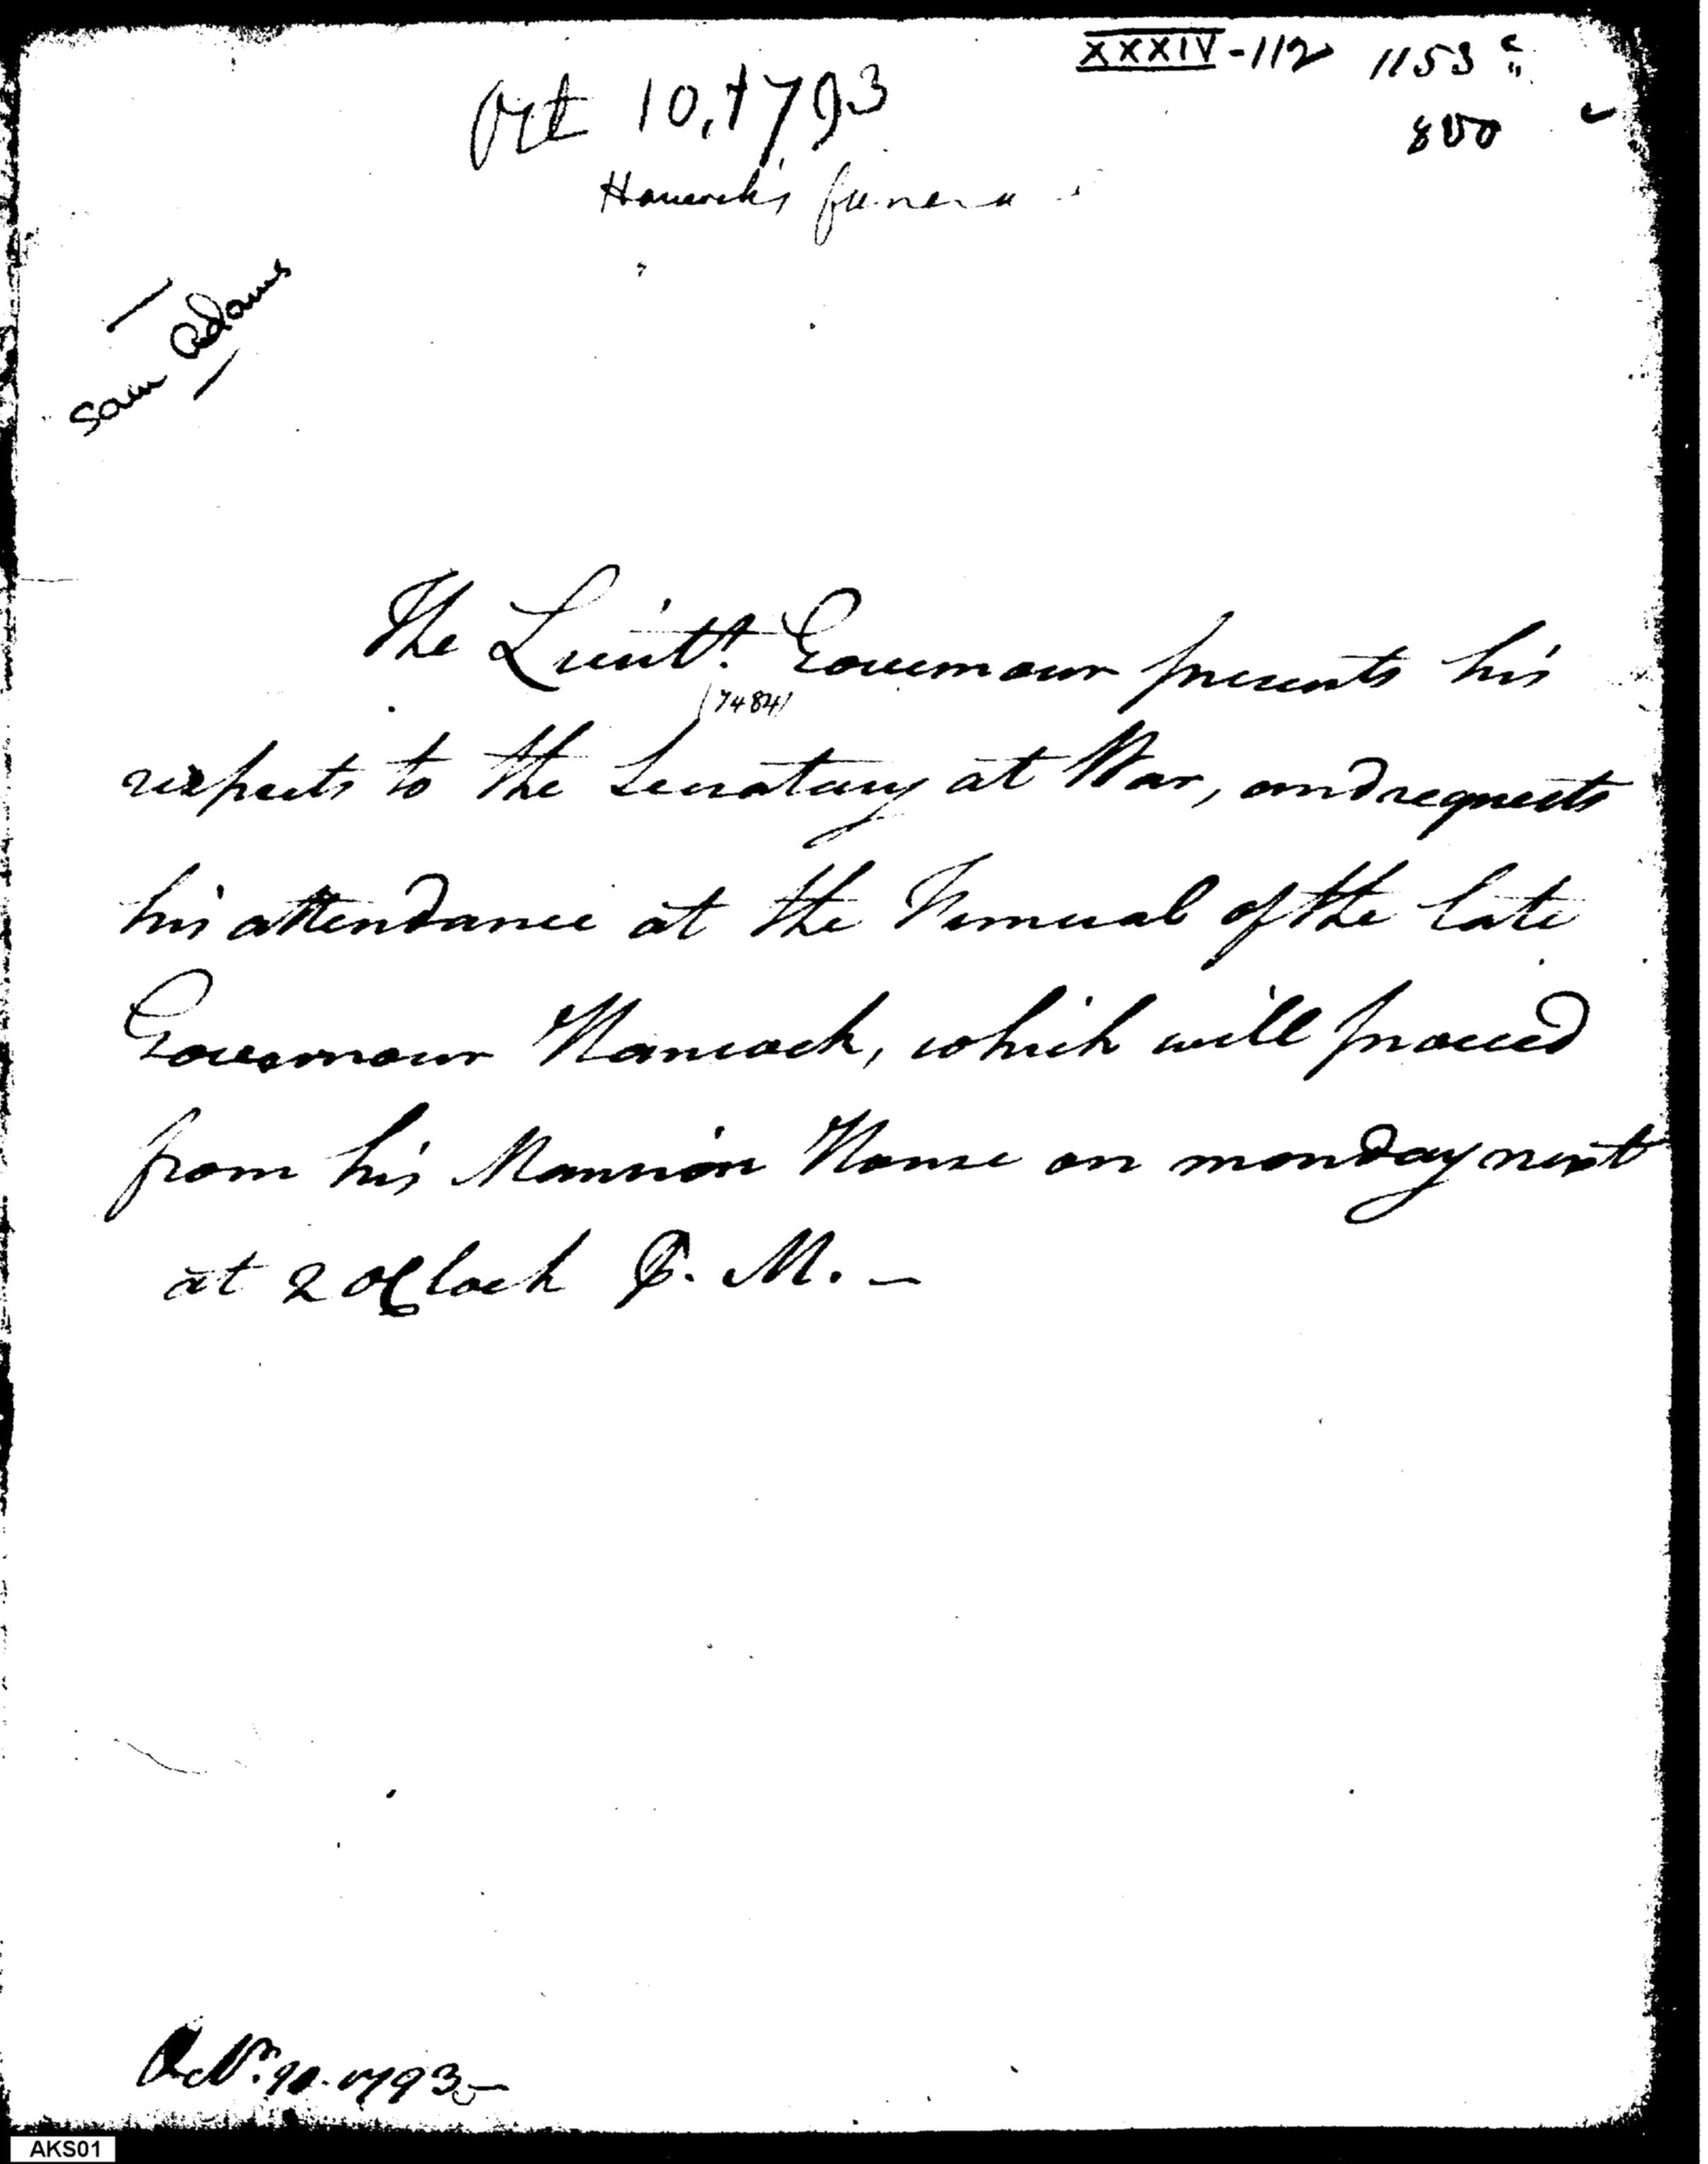 XXXIV-112 1153
800
Oct 10, 1793
Hancock's funeral
Sam Adams
The Lieutt. Governour presents his
(7484)
respects to the Secratary at War, and requests
his attendance at the Funeral of the late
Governour Hancock, which will proceed
from his Mansion House on monday next
at 2 oClock P. M. –
Octr. 10. 1793 –
AKS01